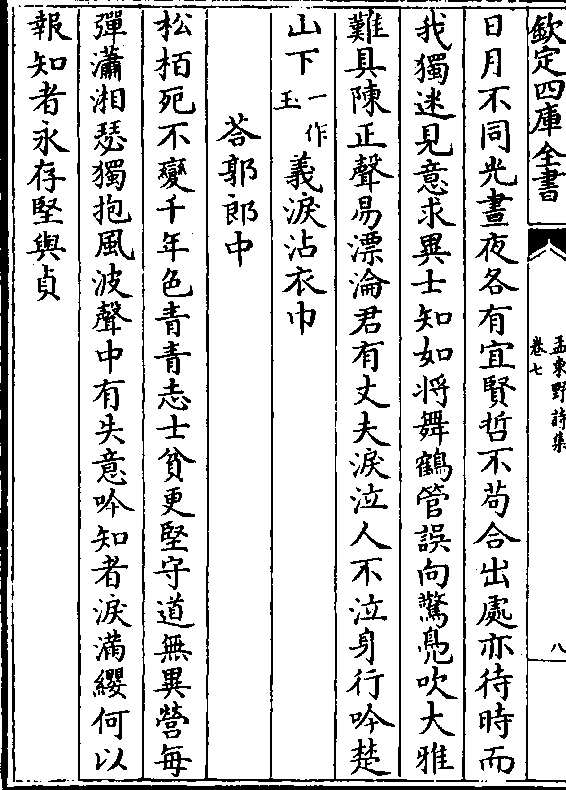 欽定四庫全書
孟東野詩集
卷七
八
日月不同光晝夜各有宜賢哲不苟合出處亦待時而
我獨迷見意求異士知如將舞鶴管誤向驚鳬吹大雅
難具陳正聲易漂淪君有丈夫淚泣人不泣身行吟楚
山下一作玉義淚沾衣巾
荅郭郎中
松栢死不變千年色青青志士貧更堅守道無異營每
彈瀟湘瑟獨抱風波聲中有失意吟知者淚滿纓何以
報知者永存堅與貞